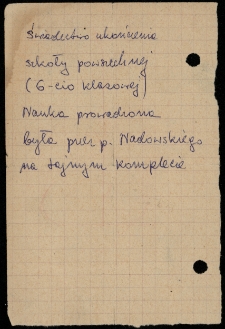 Świadectwo ukończenia
szkoły powszechnej
(6-cio klasowej)
Nauka prowadzona
była przez p. Nadowskiego
na tajnym komplecie